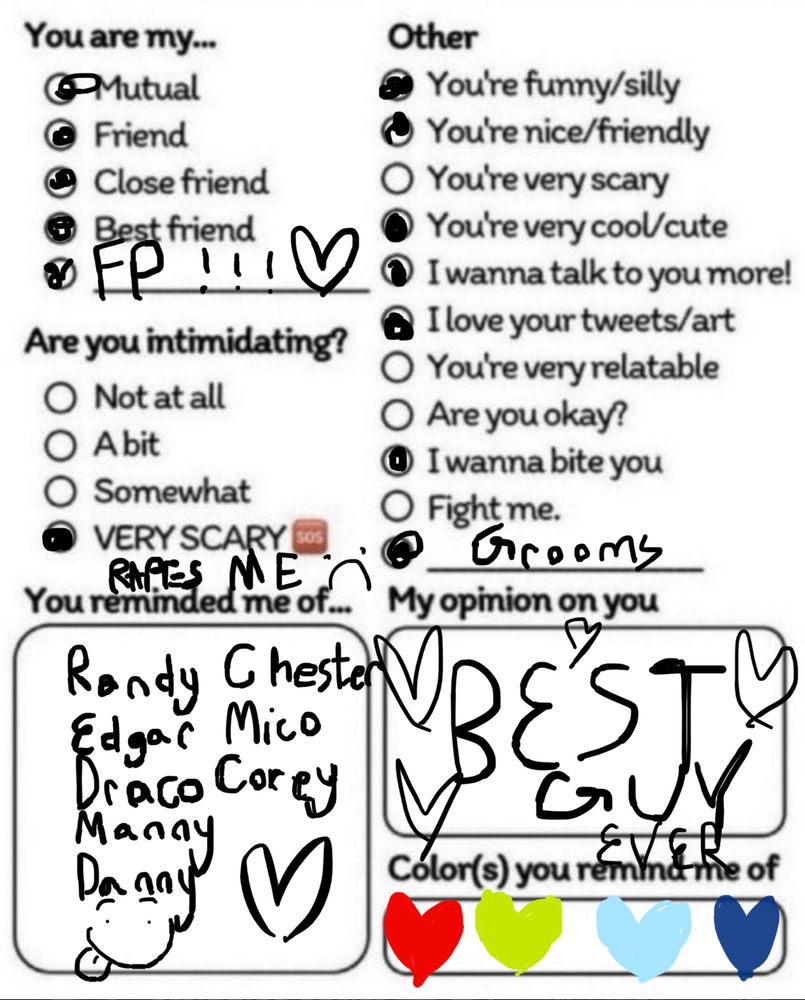 You are my...
Mutual
Friend
Close friend
Best friend
FP !!!
Are you intimidating?
Not at all
A bit
Somewhat
VERY SCARY SOS
RAPES ME
You reminded me of...
Randy Chester
Edgar Mico
Draco Corey
Manny
Danny
Other
You're funny/silly
You're nice/friendly
You're very scary
You're very cool/cute
I wanna talk to you more!
I love your tweets/art
You're very relatable
Are you okay?
I wanna bite you
Fight me.
Grooms
My opinion on you
BEST
GUY
EVER
Color(s) you remind me of